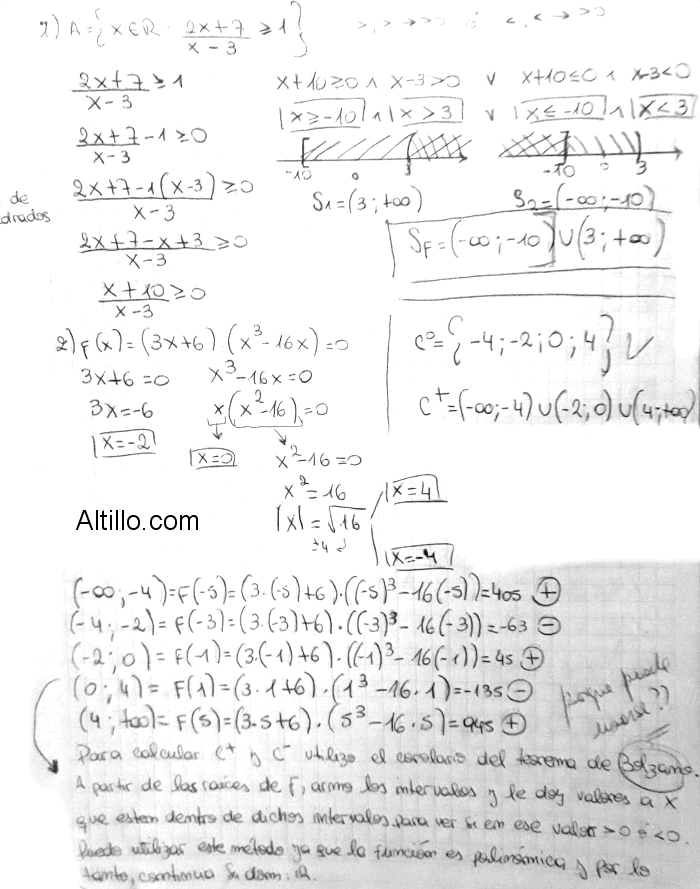 1) A={x∈ℝ . 2x+7/x-3 ≥1} >,> → >0 ó <,< → >0
2x+7/x-3 ≥1
2x+7/x-3 -1≥0
de
drados
2x+7-1(x-3)/x-3 ≥0
2x+7-x+3/x-3 ≥0
x+10/x-3 ≥0
x+10≥0 ∧ x-3>0 ∨ x+10≤0 ∧ x-3<0
x≥-10 ∧ x>3 ∨ x≤-10 ∧ x<3
-10 0 3 -10 0 3
S1=(3;+∞) S2=(-∞;-10)
SF=(-∞;-10]∪(3;+∞)
2) F(x)=(3x+6).(x³-16x)=0
3x+6=0 x³-16x=0
3x=-6 x(x²-16)=0
x=-2 x=0 x²-16=0
x²=16
|x|=√16 x=4
±4
x=-4
C⁰={-4;-2;0;4}
C⁺=(-∞;-4)∪(-2;0)∪(4;+∞)
Altillo.com
(-∞;-4)=F(-5)=(3.(-5)+6).((-5)³-16(-5))=405 ⊕
(-4;-2)=F(-3)=(3.(-3)+6).((-3)³-16(-3))=-63 ⊖
(-2;0)=F(-1)=(3.(-1)+6).((-1)³-16(-1))=45 ⊕
(0;4)=F(1)=(3.1+6).(1³-16.1)=-135 ⊖
(4;+∞)=F(5)=(3.5+6).(5³-16.5)=945 ⊕
porque puede
usarse??
Para calcular C⁺ y C⁻ utilizo el corolario del teorema de Bolzamo.
A partir de las raíces de F, armo los intervalos y le doy valores a x
que estem dentro de dichos intervalos para ver si em ese valor >0 ó <0.
Puedo utilizar este método ya que la función es polimómica y por lo
tanto, comtinua Su dom: ℝ.